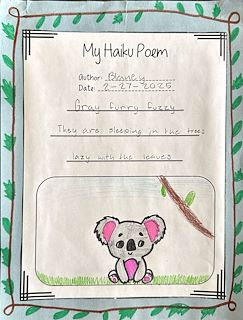 My Haiku Poem
Author:
Date: 2-27-2025
Gray furry fuzzy
They are sleeping in the trees
lazy with the leaves